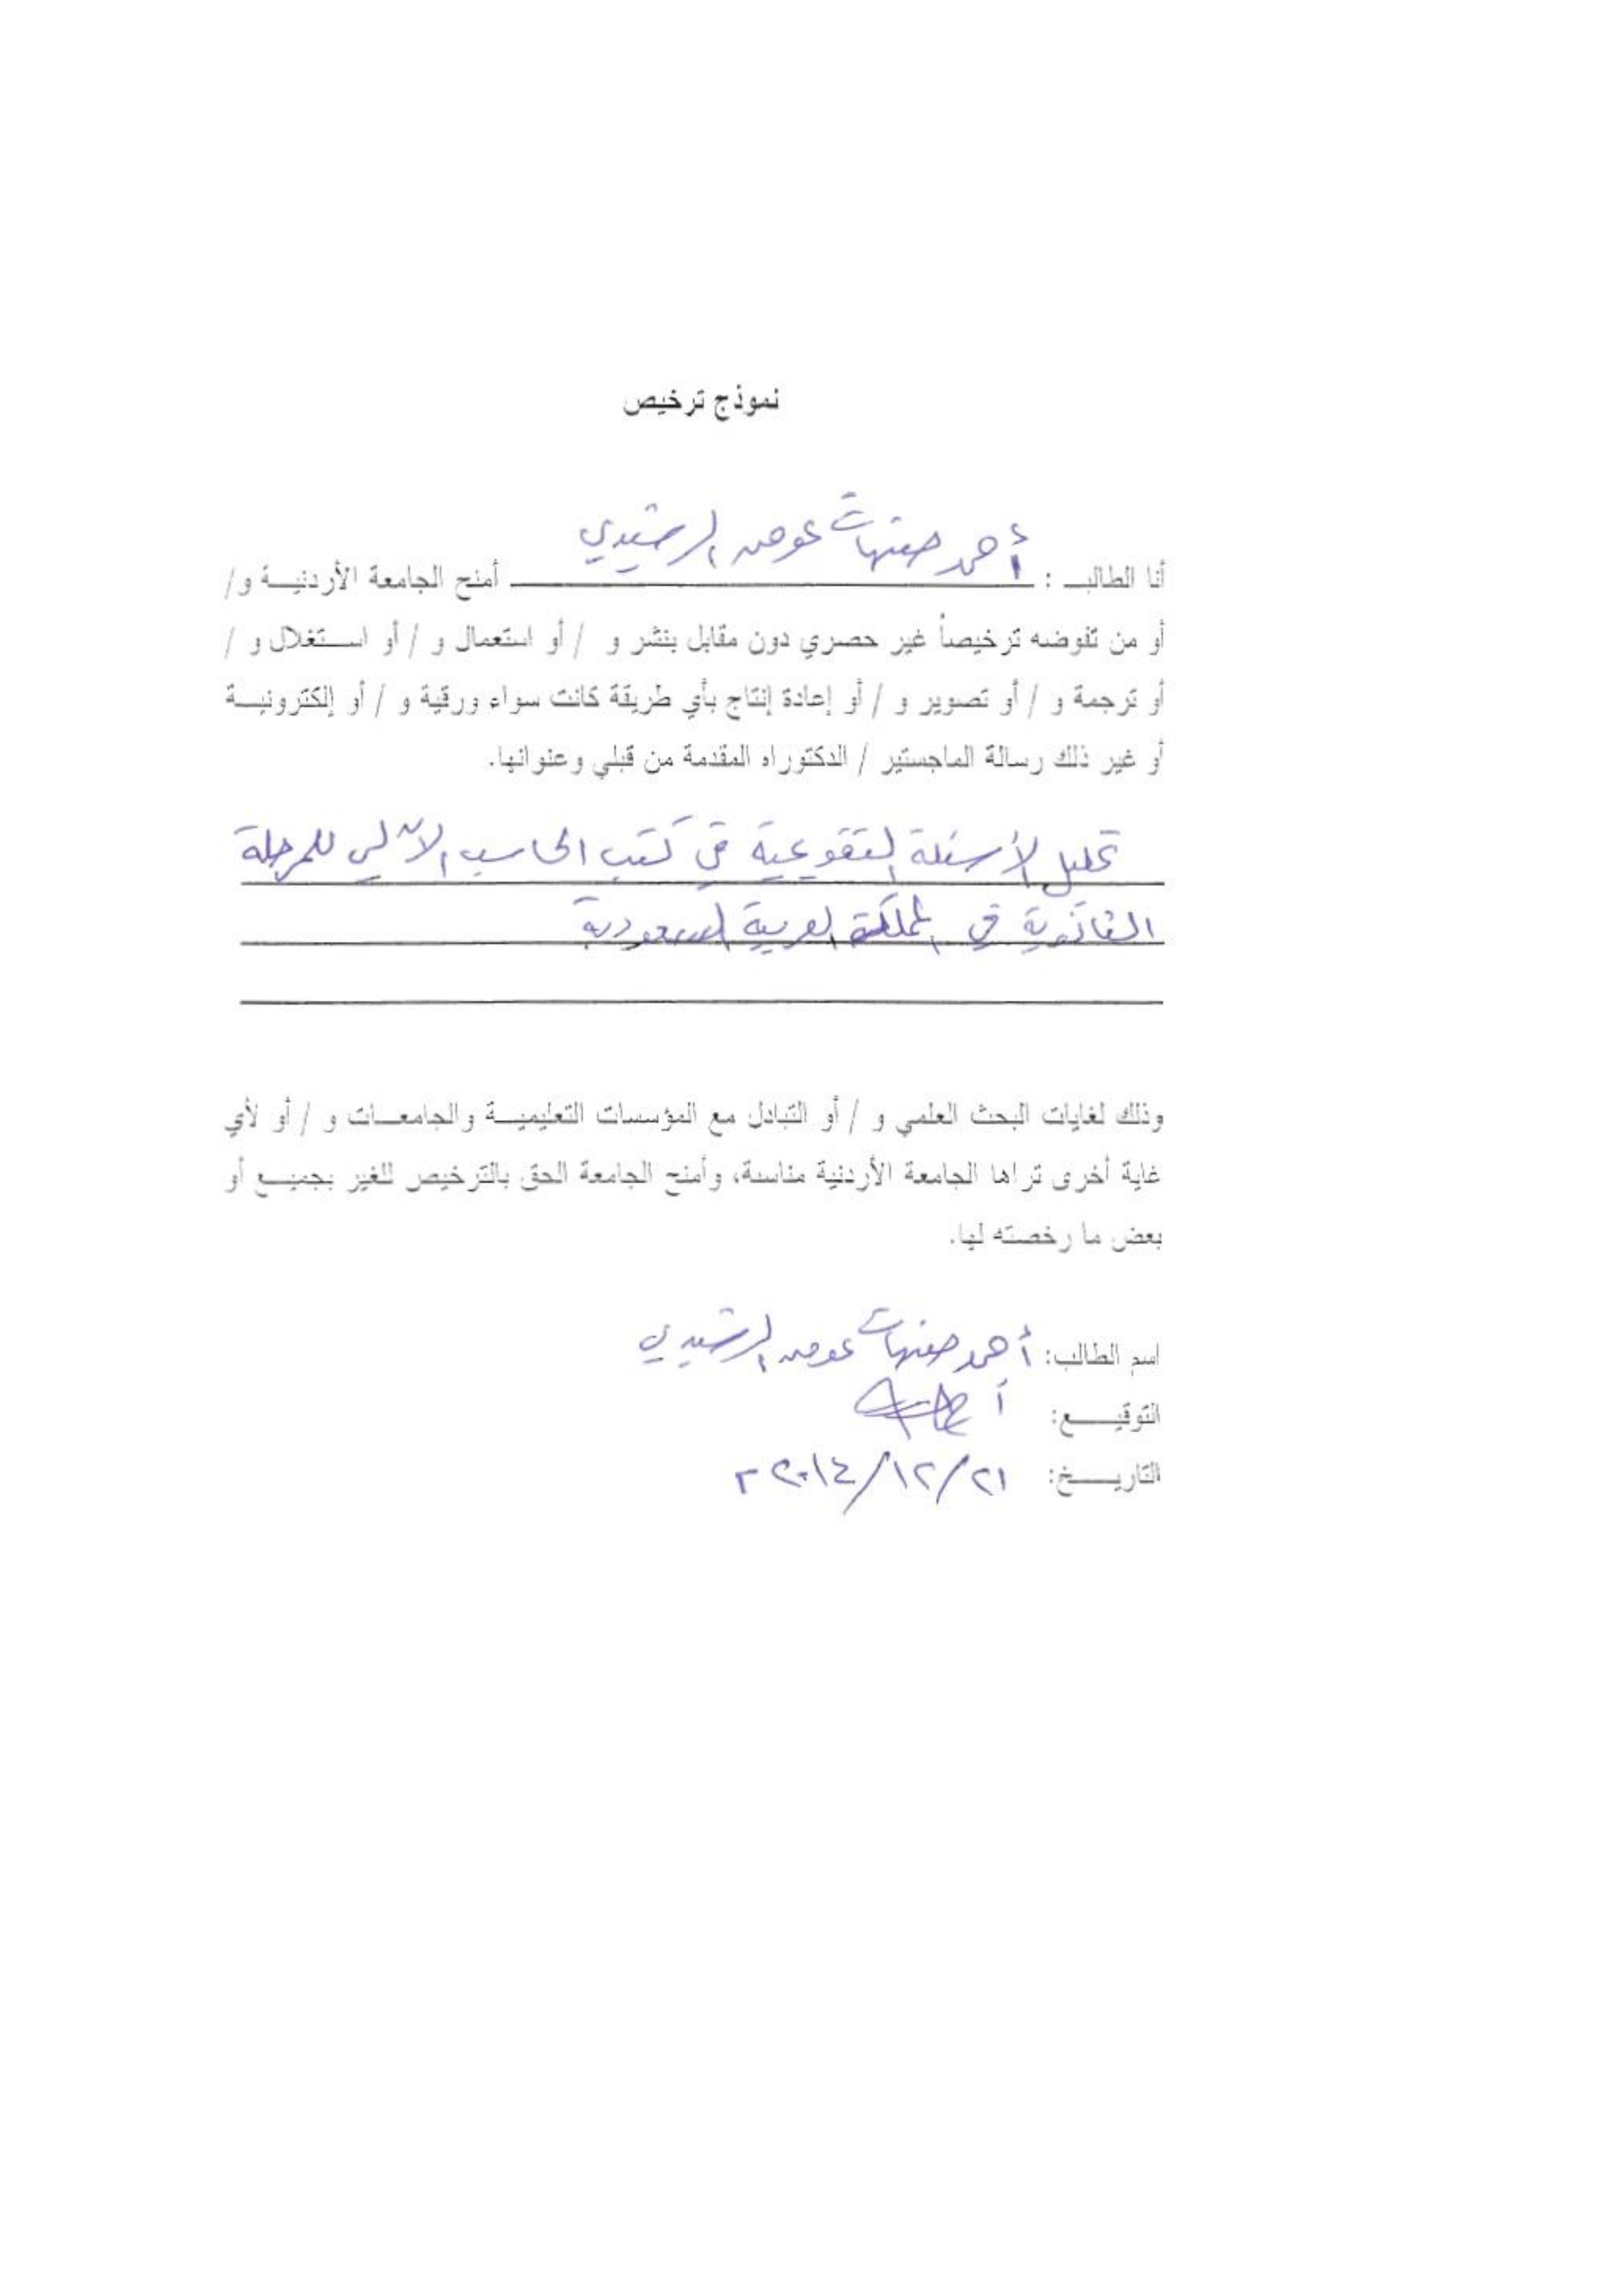 نموذج ترخيص
أنا الطالب : أحمد صنهات عوض الرشيدي أمنح الجامعة الأردنية و/
أو من تفوضه ترخيصاً غير حصري دون مقابل بنشر و / أو استعمال و / أو استغلال و /
أو ترجمة و / أو تصوير و / أو إعادة إنتاج بأي طريقة كانت سواء ورقية و / أو إلكترونية
أو غير ذلك رسالة الماجستير / الدكتوراه المقدمة من قبلي وعنوانها.
تحليل الأسئلة التقويمية في كتب الحاسب الآلي للمرحلة
الثانوية في المملكة العربية السعودية
وذلك لغايات البحث العلمي و / أو التبادل مع المؤسسات التعليمية والجامعات و / أو لأي
غاية أخرى تراها الجامعة الأردنية مناسبة، وأمنح الجامعة الحق بالترخيص للغير بجميع أو
بعض ما رخصته لها.
اسم الطالب: أحمد صنهات عوض الرشيدي
التوقيع:
التاريخ: ٢١/١٢/٢٠١٤ م